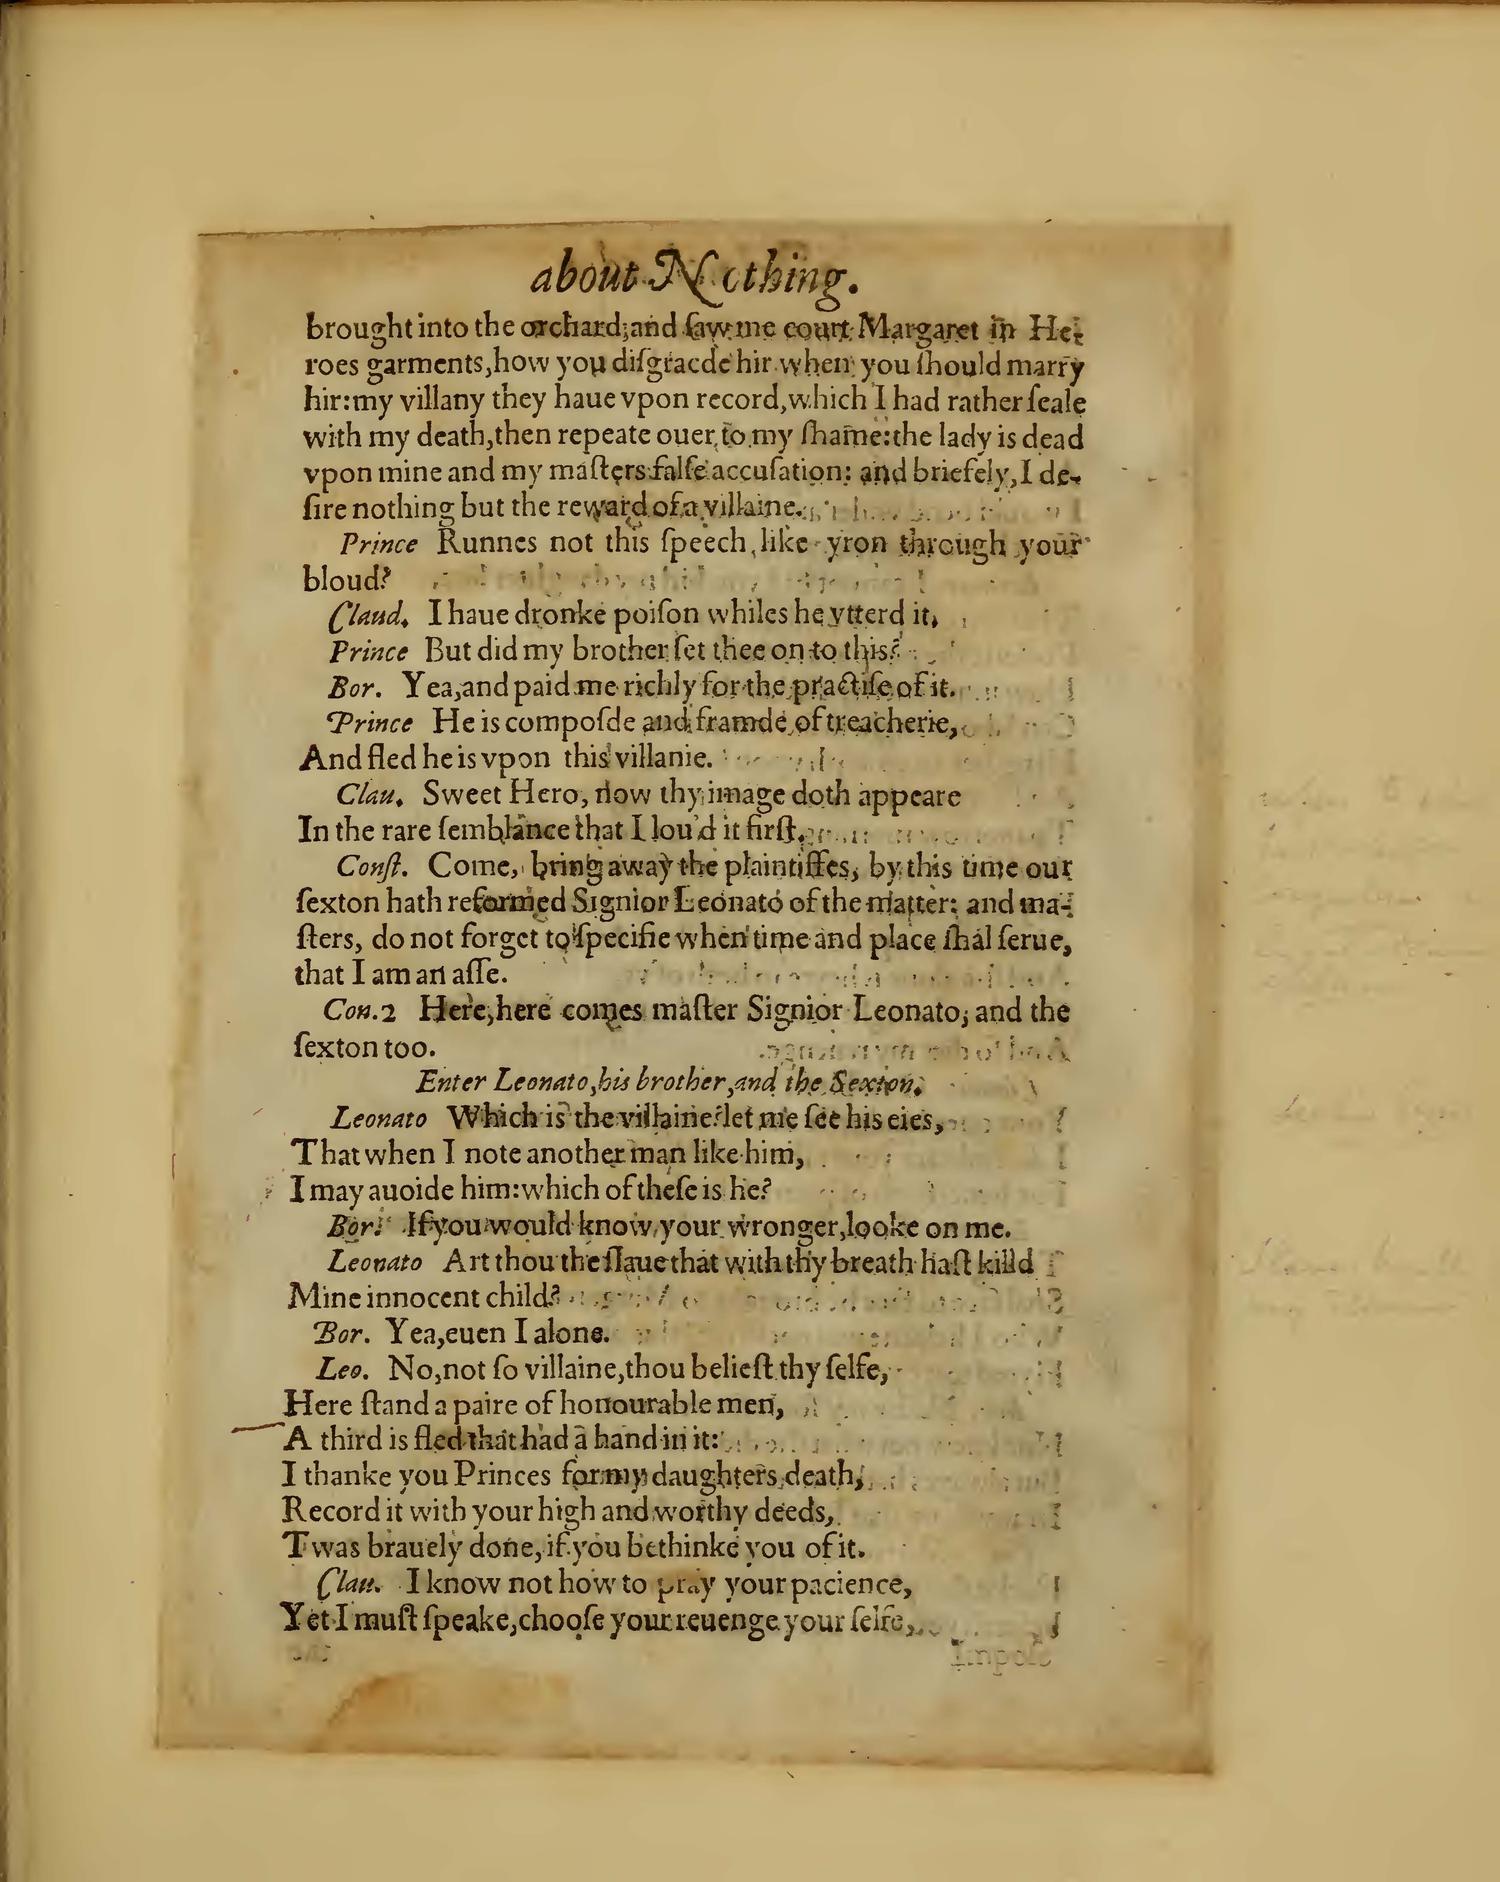 about Nothing.
brought into the orchard, and ſaw me court Margaret in He-
roes garments, how you diſgracde hir when you ſhould marry
hir: my villany they haue vpon record, which I had rather ſeale
with my death, then repeate ouer to my ſhame: the lady is dead
vpon mine and my maſters falſe accuſation: and briefely, I de-
ſire nothing but the reward of a villaine.
Prince Runnes not this ſpeech like yron through your
bloud?
Claud. I haue dronke poiſon whiles he vtterd it.
Prince But did my brother ſet thee on to this?
Bor. Yea, and paid me richly for the practiſe of it.
Prince He is compoſde and framde of treacherie,
And fled he is vpon this villanie.
Clau. Sweet Hero, now thy image doth appeare
In the rare ſemblance that I lou'd it firſt.
Conſt. Come, bring away the plaintiffes, by this time our
ſexton hath reformed Signior Leonato of the matter: and ma-
ſters, do not forget to ſpecifie when time and place ſhal ſerue,
that I am an aſſe.
Con.2 Here, here comes maſter Signior Leonato, and the
ſexton too.
Enter Leonato, his brother, and the Sexton.
Leonato Which is the villaine? let me ſee his eies,
That when I note another man like him,
I may auoide him: which of theſe is he?
Bor. If you would know your wronger, looke on me.
Leonato Art thou the ſlaue that with thy breath haſt killd
Mine innocent child?
Bor. Yea, euen I alone.
Leo. No, not ſo villaine, thou belieſt thy ſelfe,
Here ſtand a paire of honourable men,
A third is fled that had a hand in it:
I thanke you Princes for my daughters death,
Record it with your high and worthy deeds,
Twas brauely done, if you bethinke you of it.
Clau. I know not how to pray your pacience,
Yet I muſt ſpeake, chooſe your reuenge your ſelfe,
Impoſe